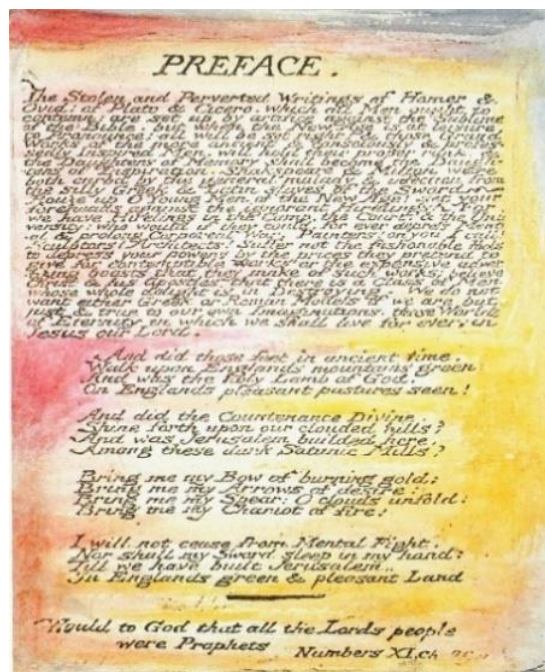 PREFACE.
The Stolen and Perverted Writings of Homer &
Ovid: of Plato & Cicero. which all Men ought to
contemn: are set up by artifice against the Sublime
of the Bible. but when the New Age is at leisure
to Pronounce; all will be set right: & those Grand
Works of the more ancient & consciously & profes-
sedly Inspired Men, will hold their proper rank, &
the Daughters of Memory shall become the Daugh-
ters of Inspiration. Shakspeare & Milton were
both curbd by the general malady & infection from
the silly Greek & Latin slaves of the Sword.
Rouze up O Young Men of the New Age! set your
foreheads against the ignorant Hirelings! For
we have Hirelings in the Camp, the Court, & the Uni-
versity: who would if they could, for ever depress Mental
& prolong Corporeal War. Painters! on you I call!
Sculptors! Architects! Suffer not the fashionable Fools
to depress your powers by the prices they pretend to
give for contemptible works or the expensive adver-
tizing boasts that they make of such works; believe
Christ & his Apostles that there is a Class of Men
whose whole delight is in Destroying. We do not
want either Greek or Roman Models if we are but
just & true to our own Imaginations, those Worlds
of Eternity in which we shall live for ever; in
Jesus our Lord.
And did those feet in ancient time.
Walk upon Englands mountains green:
And was the holy Lamb of God.
On Englands pleasant pastures seen!
And did the Countenance Divine.
Shine forth upon our clouded hills?
And was Jerusalem builded here.
Among these dark Satanic Mills?
Bring me my Bow of burning gold:
Bring me my Arrows of desire:
Bring me my Spear: O clouds unfold:
Bring me my Chariot of fire!
I will not cease from Mental Fight.
Nor shall my Sword sleep in my hand:
Till we have built Jerusalem.
In Englands green & pleasant Land
Would to God that all the Lords people
were Prophets Numbers XI. ch